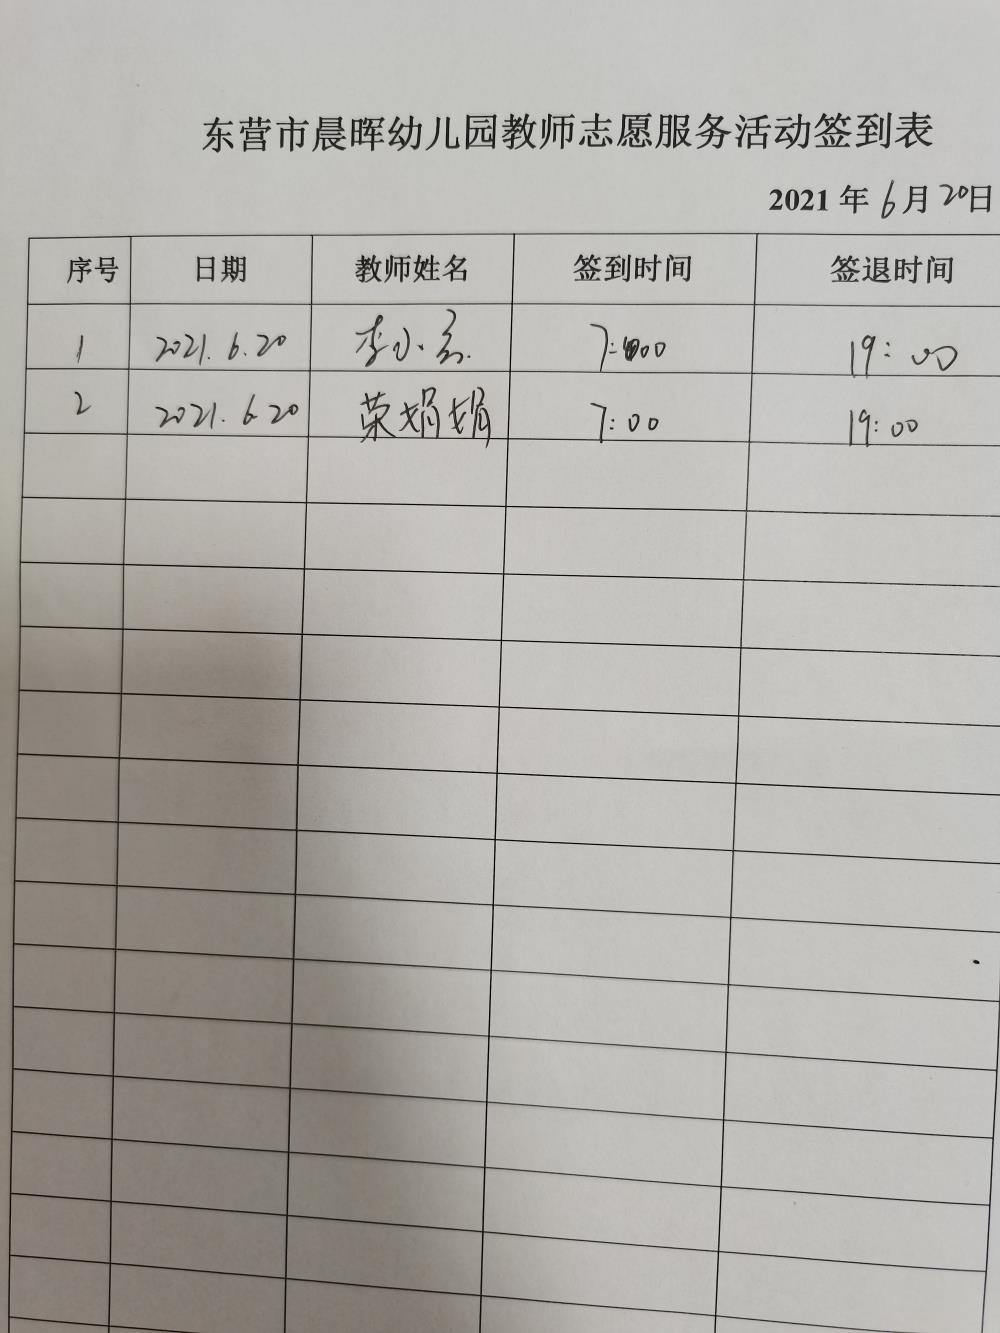 东营市晨晖幼儿园教师志愿服务活动签到表
2021 年 6 月 20 日
序号 日期 教师姓名 签到时间 签退时间
1 2021.6.20 李小 7:00 19:00
2 2021.6.20 荣娟娟 7:00 19:00